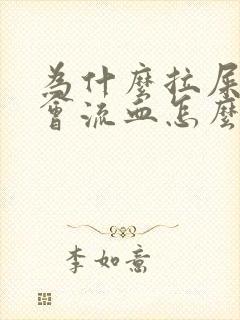 為什麼拉屎
會流血怎麼
李如意